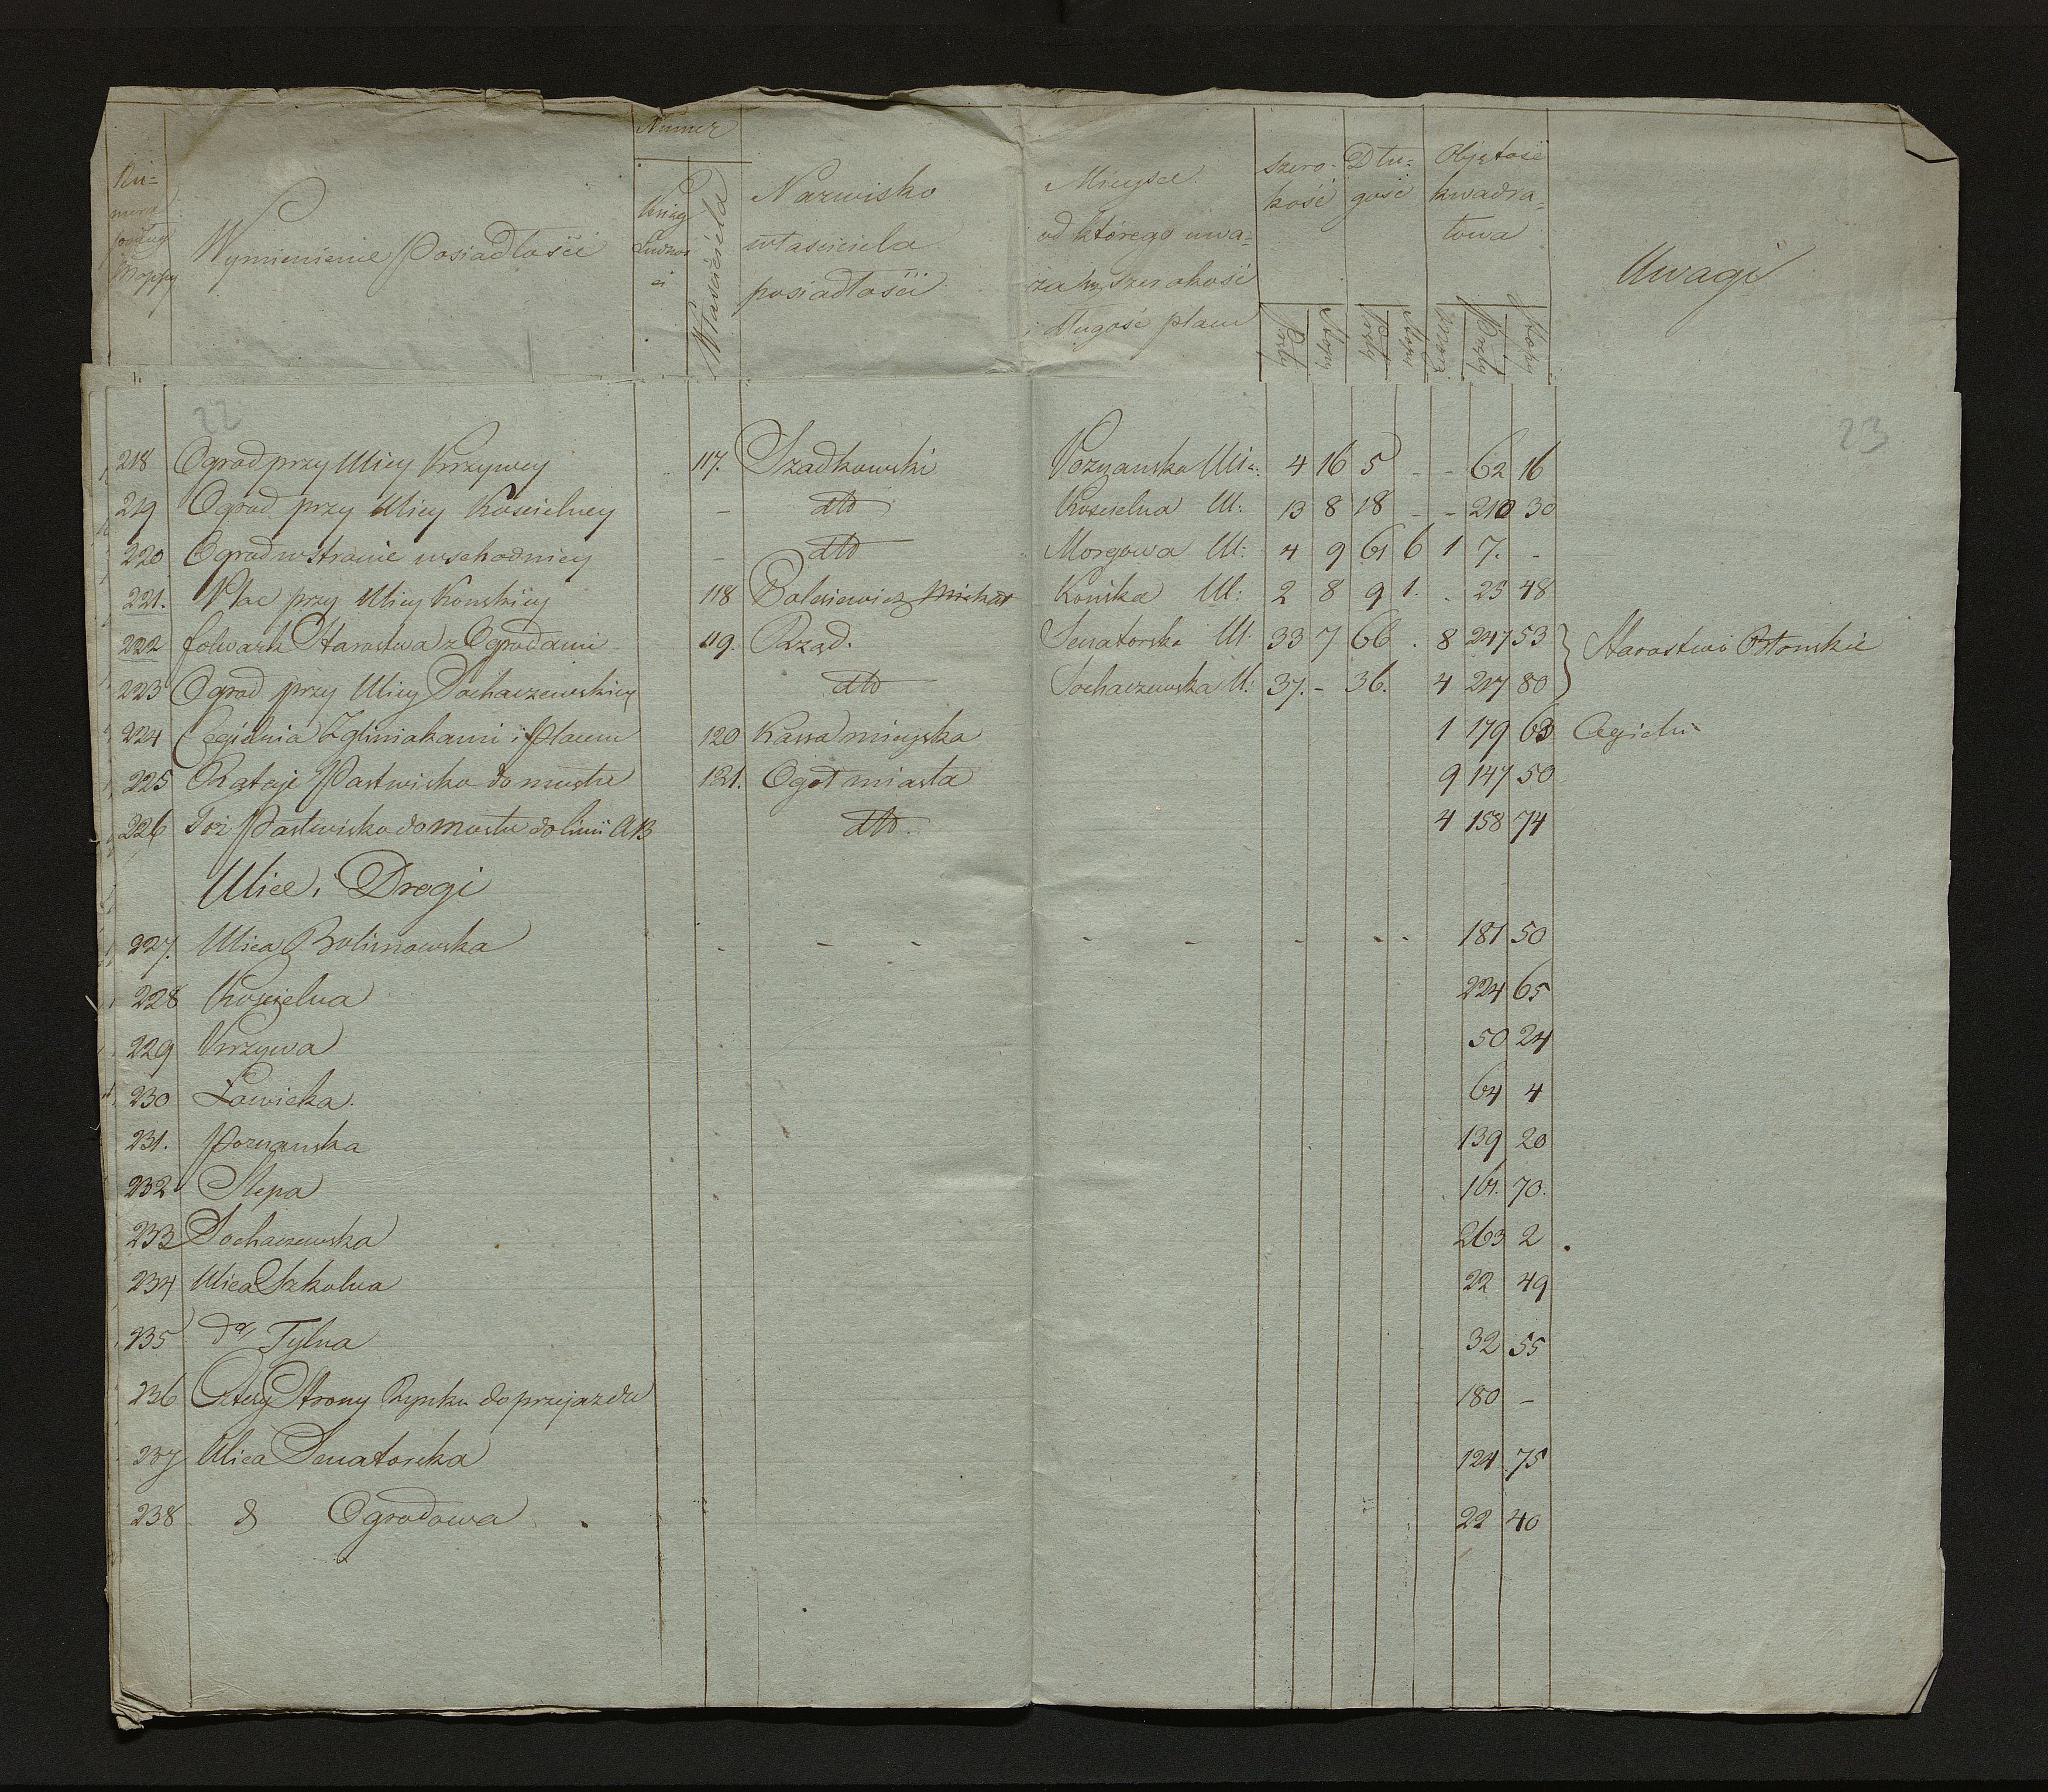 Numer
Nu=
mera
podług
Mappy
Wymienienie Posiadłości
Księg
Ludnos
ci
Właściciela
Nazwisko
właściciela
posiadłości
Mieysce
od którego uwa=
za się szerokość
i długość placu
Szero-
kość
Dłu=
gość
Objętość
kwadra=
towa
Uwagi
Pręty
Stopy
Pręty
Stopy
Morgi
Pręty
Stopy
22
23
218 Ogrod przy Ulicy Krzywey 117. Szadkowski Poznanska Ulic: 4 16 5 - - 62 16
219 Ogrod przy Ulicy Koscielney - dto Koscielna Ul: 13 8 18 - - 210 30
220 Ogrod w stronie wschodniey - dto Morgowa Ul: 4 9 61 6 1 7. -
221. Plac przy Ulicy Konskiey 118 Bolesiewicz Michał Konska Ul: 2 8 9 1. . 23 48
222 folwark Starostwa z Ogrodami 119. Rząd. Senatorska Ul 33 7 66 . 8 247 53 Starostwo Błonskie
223 Ogrod przy Ulicy Sochaczewskiey dto Sochaczewska Ul: 37. - 36. 4 217 80
224 Cegielnia Z gliniakami i Placem 120 Kassa mieyska 1 179 63 Cegielnia
225 Rątaje Pastwisko do mostu 121. Ogoł miasta 9 147 50
226 Toż Pastwisko do Mostu do linii AB dto. 4 158 74
Ulice i Drogi
227. Ulica Bolimowska - - - - - - - - 181 50
228 Koscielna 224 65
229 Krzywa 50 24
230 Łowicka. 64 4
231. Poznanska 139 20
232 Slepa 161. 70.
233 Sochaczewska 263 2
234 Ulica Szkolna 22 49
235 do Tylna 32 55
236 Cztery Strony Rynku do przejazdu 180 -
237 Ulica Senatorska 124 75
238 d Ogrodowa 22 40